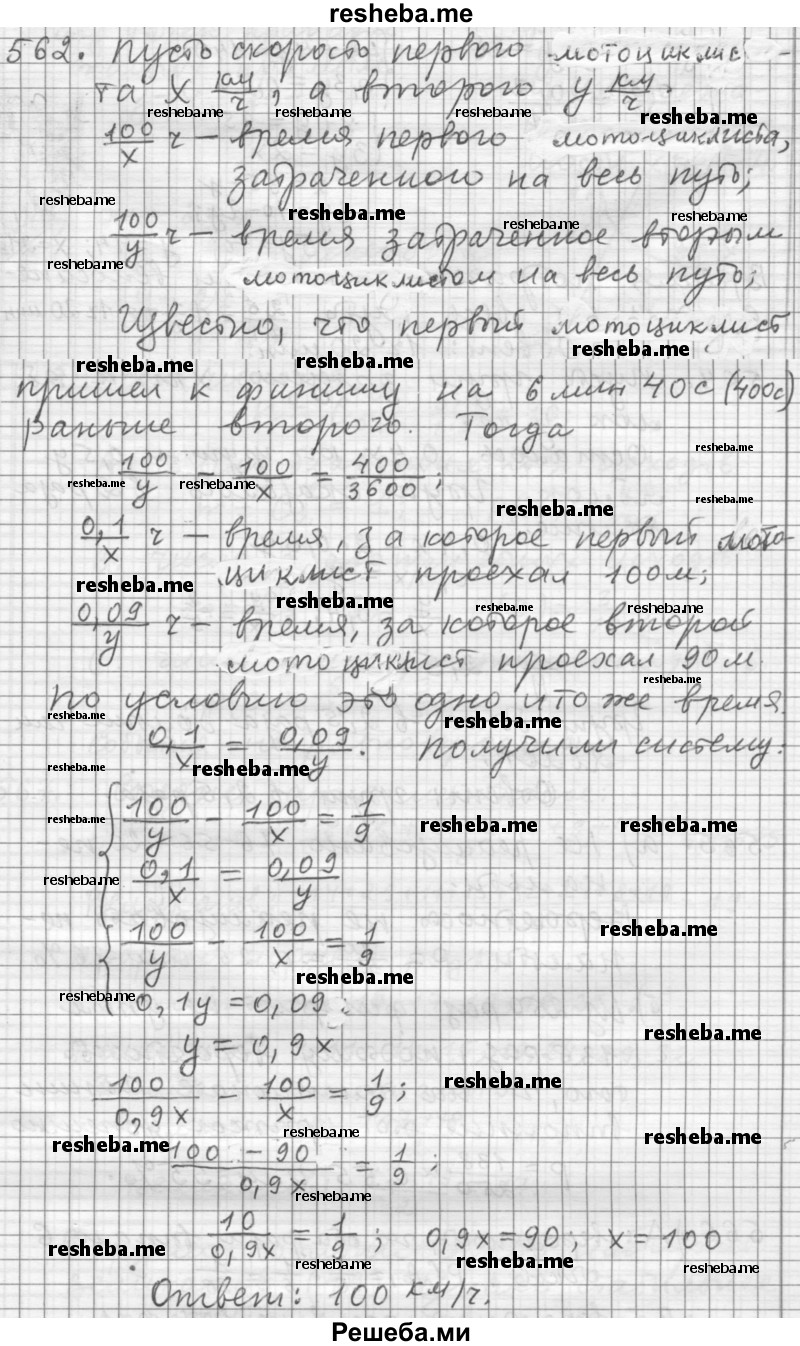 resheba.me
562. Пусть скорость первого мотоциклис-
та x км/ч, а второго y км/ч.
resheba.me resheba.me resheba.me resheba.me
100/x ч – время первого мотоциклиста,
затраченного на весь путь;
resheba.me resheba.me resheba.me resheba.me
100/y ч – время затраченное вторым
resheba.me
мотоциклистом на весь путь;
Известно, что первый мотоциклист
resheba.me resheba.me resheba.me
пришел к финишу на 6 мин 40с (400с)
раньше второго. Тогда
resheba.me
100/y – 100/x = 400/3600;
resheba.me resheba.me resheba.me resheba.me
0,1/x ч – время, за которое первый мото-
циклист проехал 100м;
resheba.me resheba.me resheba.me resheba.me
0,09/y ч – время, за которое второй
мотоциклист проехал 90м.
resheba.me
По условию это одно и то же время.
resheba.me resheba.me
0,1/x = 0,09/y. Получили систему:
resheba.me resheba.me
{ 100/y – 100/x = 1/9
resheba.me resheba.me resheba.me
0,1/x = 0,09/y
resheba.me
{ 100/y – 100/x = 1/9
resheba.me resheba.me
0,1y = 0,09;
resheba.me
y = 0,9x
resheba.me
100/0,9x – 100/x = 1/9;
resheba.me
resheba.me resheba.me resheba.me
100 – 90/0,9x = 1/9;
resheba.me
10/0,9x = 1/9; 0,9x = 90; x = 100
resheba.me resheba.me resheba.me resheba.me
Ответ: 100 км/ч.
Решеба.ми